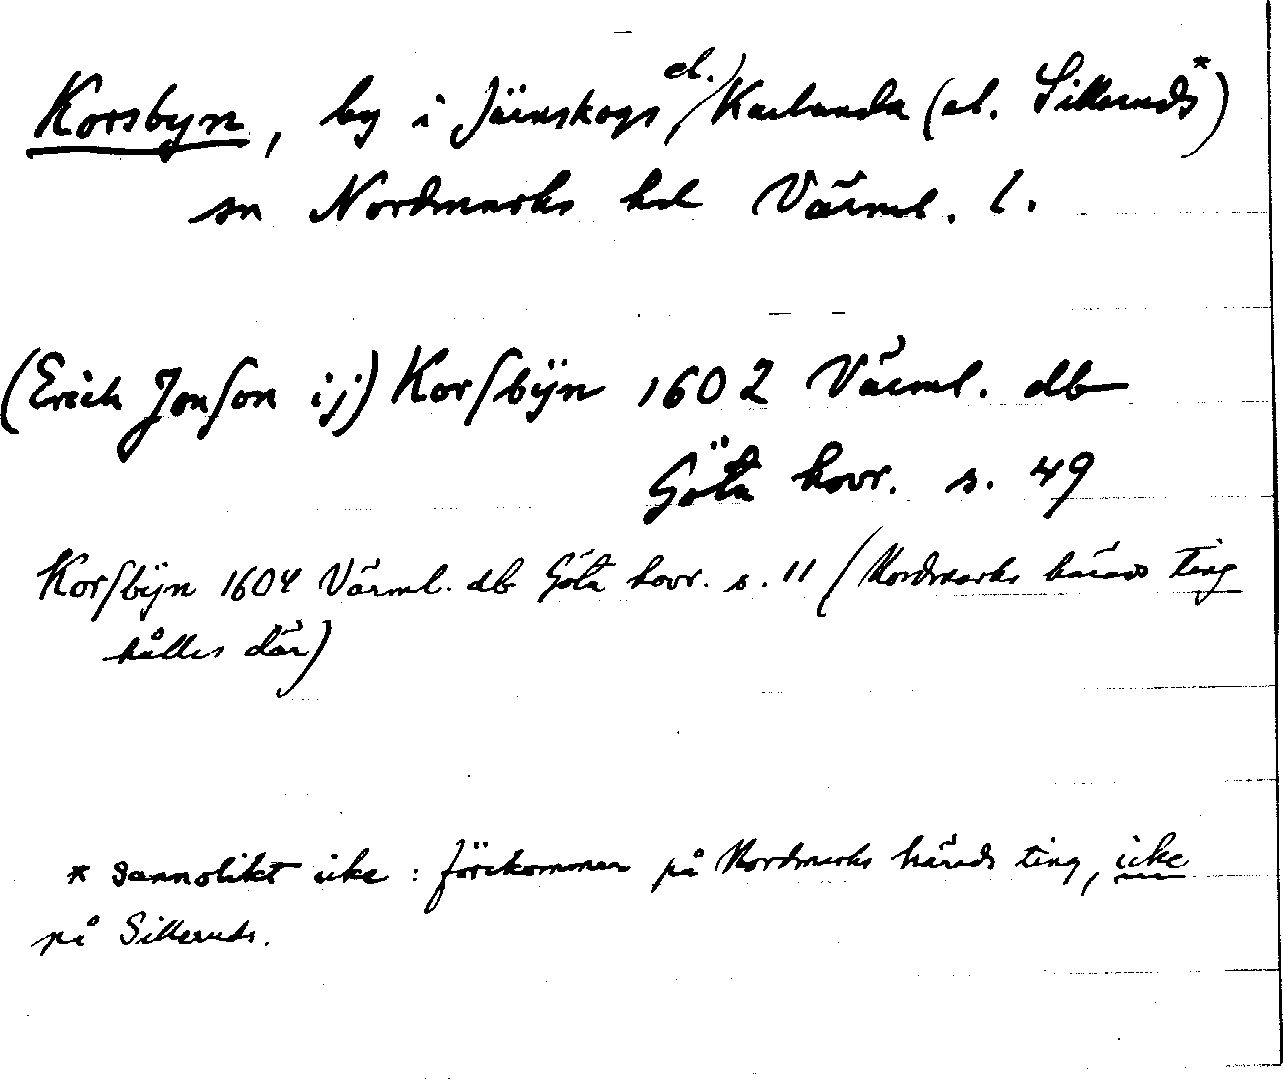 Korsbyn, by i Järnskogs el./Karlanda (el. Silleruds*)
sn Nordmarks hd Värml. l.
(Erich Jonson ij) Korsbÿn 1602 Värml. db
Göta hovr. s. 49
Korsbÿn 1604 Värml. db Göta hovr. s. 11 (Nordmarks härads ting
hålles där)
* sannolikt icke : förekommer på Nordmarks härads ting, icke
på Silleruds.